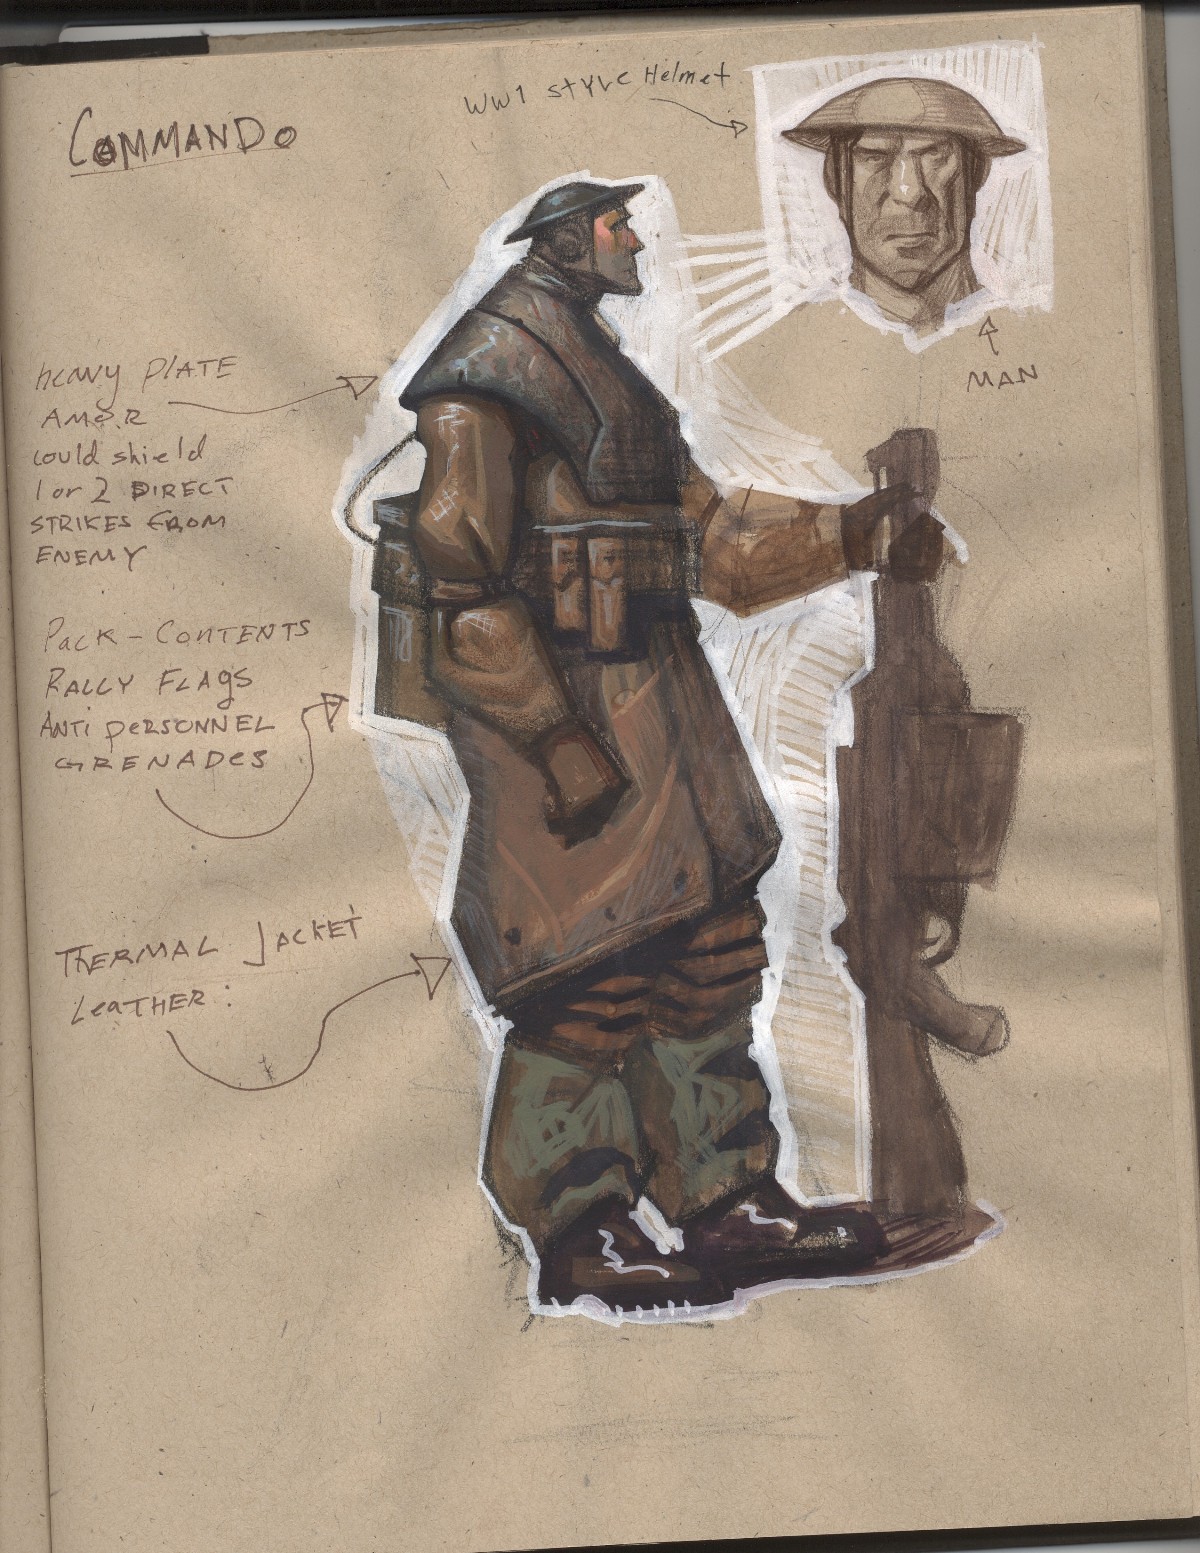 COMMANDO
WW1 STYLE Helmet
MAN
heavy PLATE
AMOR
could shield
1 or 2 DIRECT
STRIKES FROM
ENEMY
PACK - CONTENTS
RALLY FLAgS
ANTI peRSONNEL
GRENADeS
THERMAL JACKET
LeATHER :